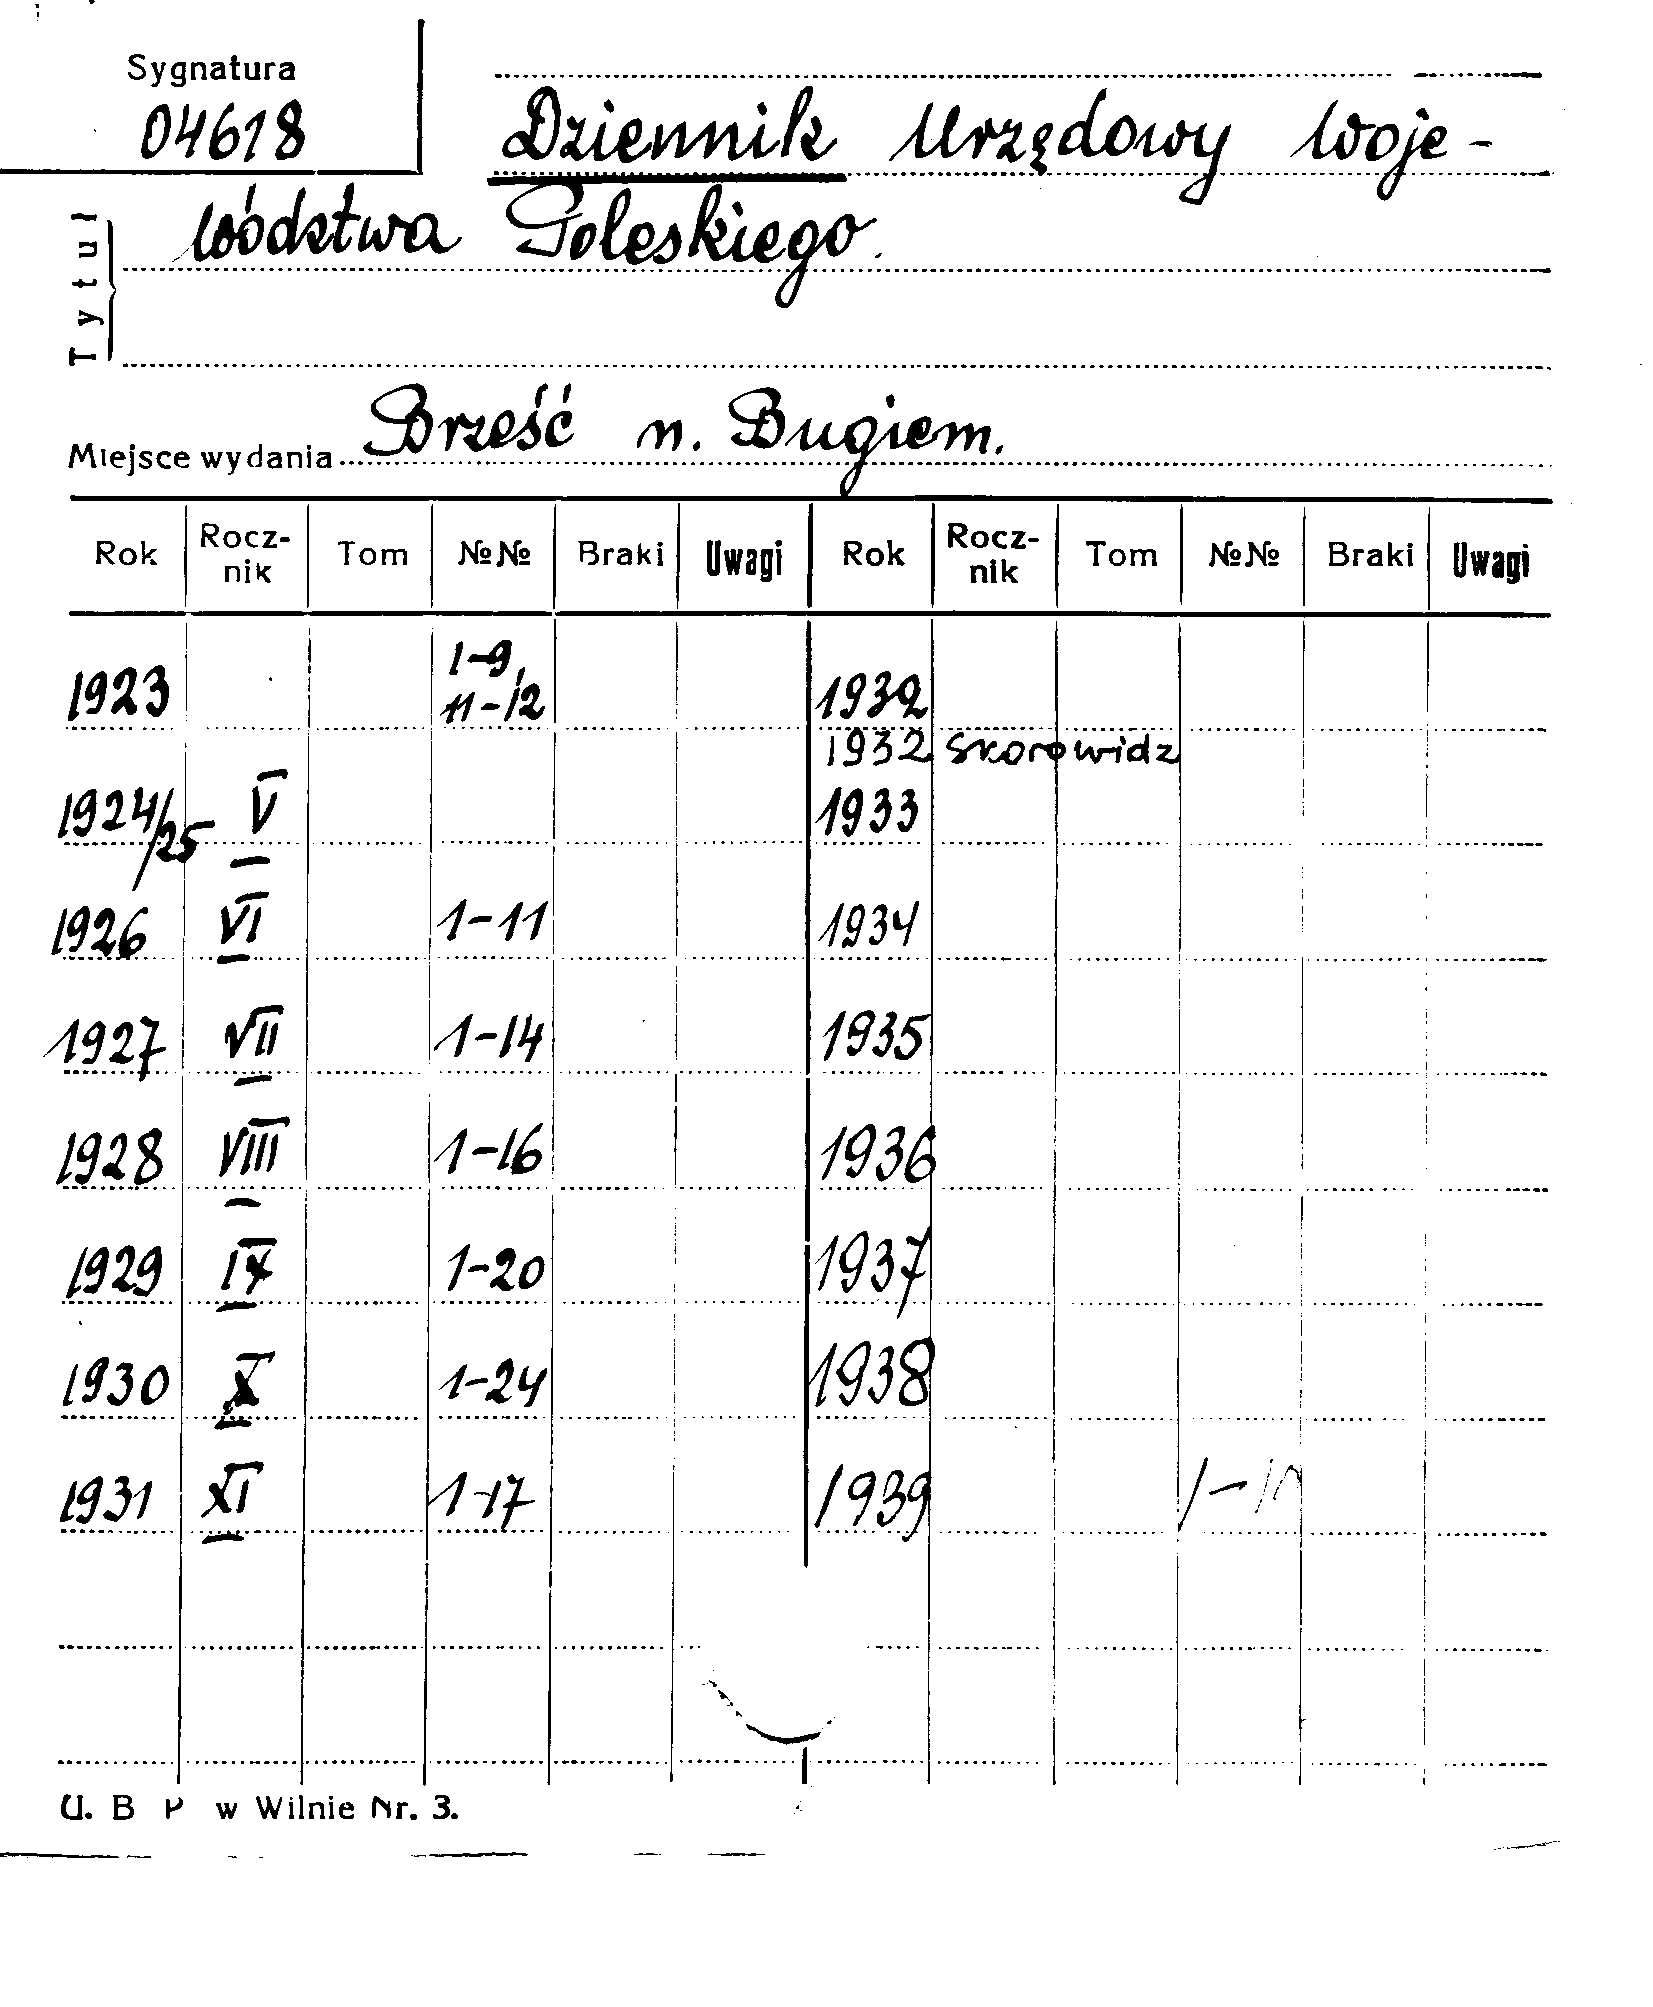 Sygnatura
04618
Dziennik Urzędowy Woje-
wództwa Poleskiego.
Tytuł
Miejsce wydania Brześć n. Bugiem.
Rok Rocz-nik Tom №№ Braki Uwagi Rok Rocz-nik Tom №№ Braki Uwagi
1923 1-9, 11-12 1932
1932 skorowidz
1924/25 V 1933
1926 VI 1-11 1934
1927 VII 1-14 1935
1928 VIII 1-16 1936
1929 IX 1-20 1937
1930 X 1-24 1938
1931 XI 1-17 1939 1-
U. B P w Wilnie Nr. 3.